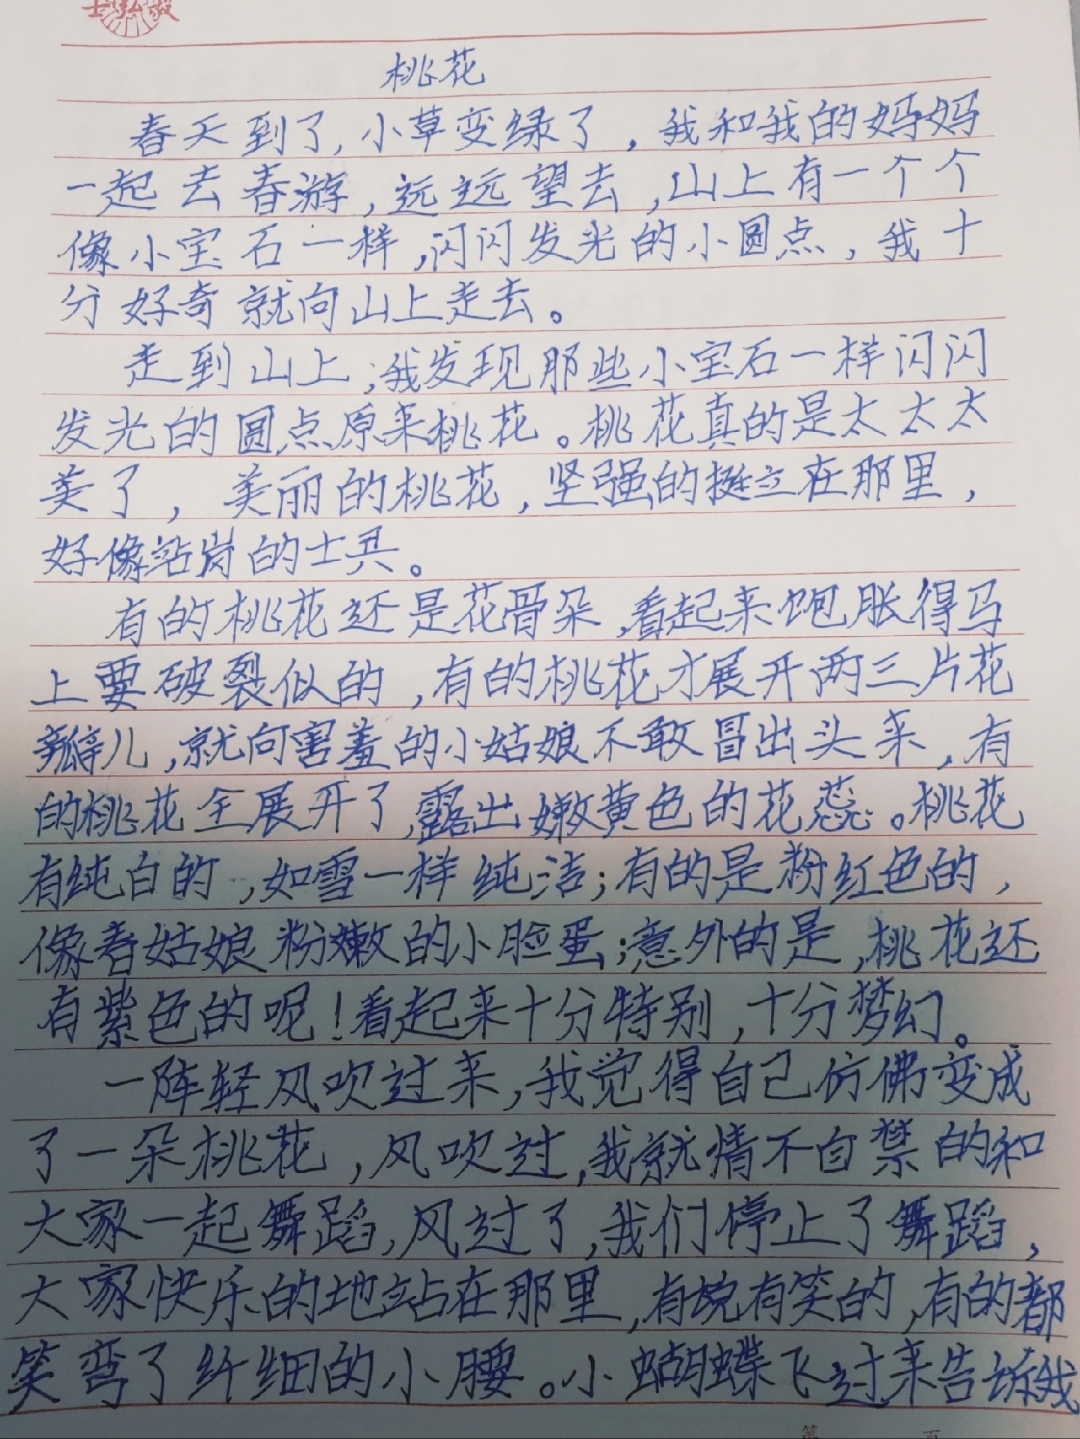 士弘毅
桃花
春天到了,小草变绿了,我和我的妈妈
一起去春游,远远望去,山上有一个个
像小宝石一样,闪闪发光的小圆点,我十
分好奇就向山上走去。
走到山上,我发现那些小宝石一样闪闪
发光的圆点原来桃花。桃花真的是太太太
美了,美丽的桃花,坚强的挺立在那里,
好像站岗的士兵。
有的桃花还是花骨朵,看起来饱胀得马
上要破裂似的,有的桃花才展开两三片花
瓣儿,就向害羞的小姑娘不敢冒出头来,有
的桃花全展开了,露出嫩黄色的花蕊。桃花
有纯白的,如雪一样纯洁;有的是粉红色的,
像春姑娘粉嫩的小脸蛋;意外的是,桃花还
有紫色的呢!看起来十分特别,十分梦幻。
一阵轻风吹过来,我觉得自己仿佛变成
了一朵桃花,风吹过,我就情不自禁的和
大家一起舞蹈,风过了,我们停止了舞蹈,
大家快乐的地站在那里,有说有笑的,有的都
笑弯了纤细的小腰。小蝴蝶飞过来告诉我
第 页